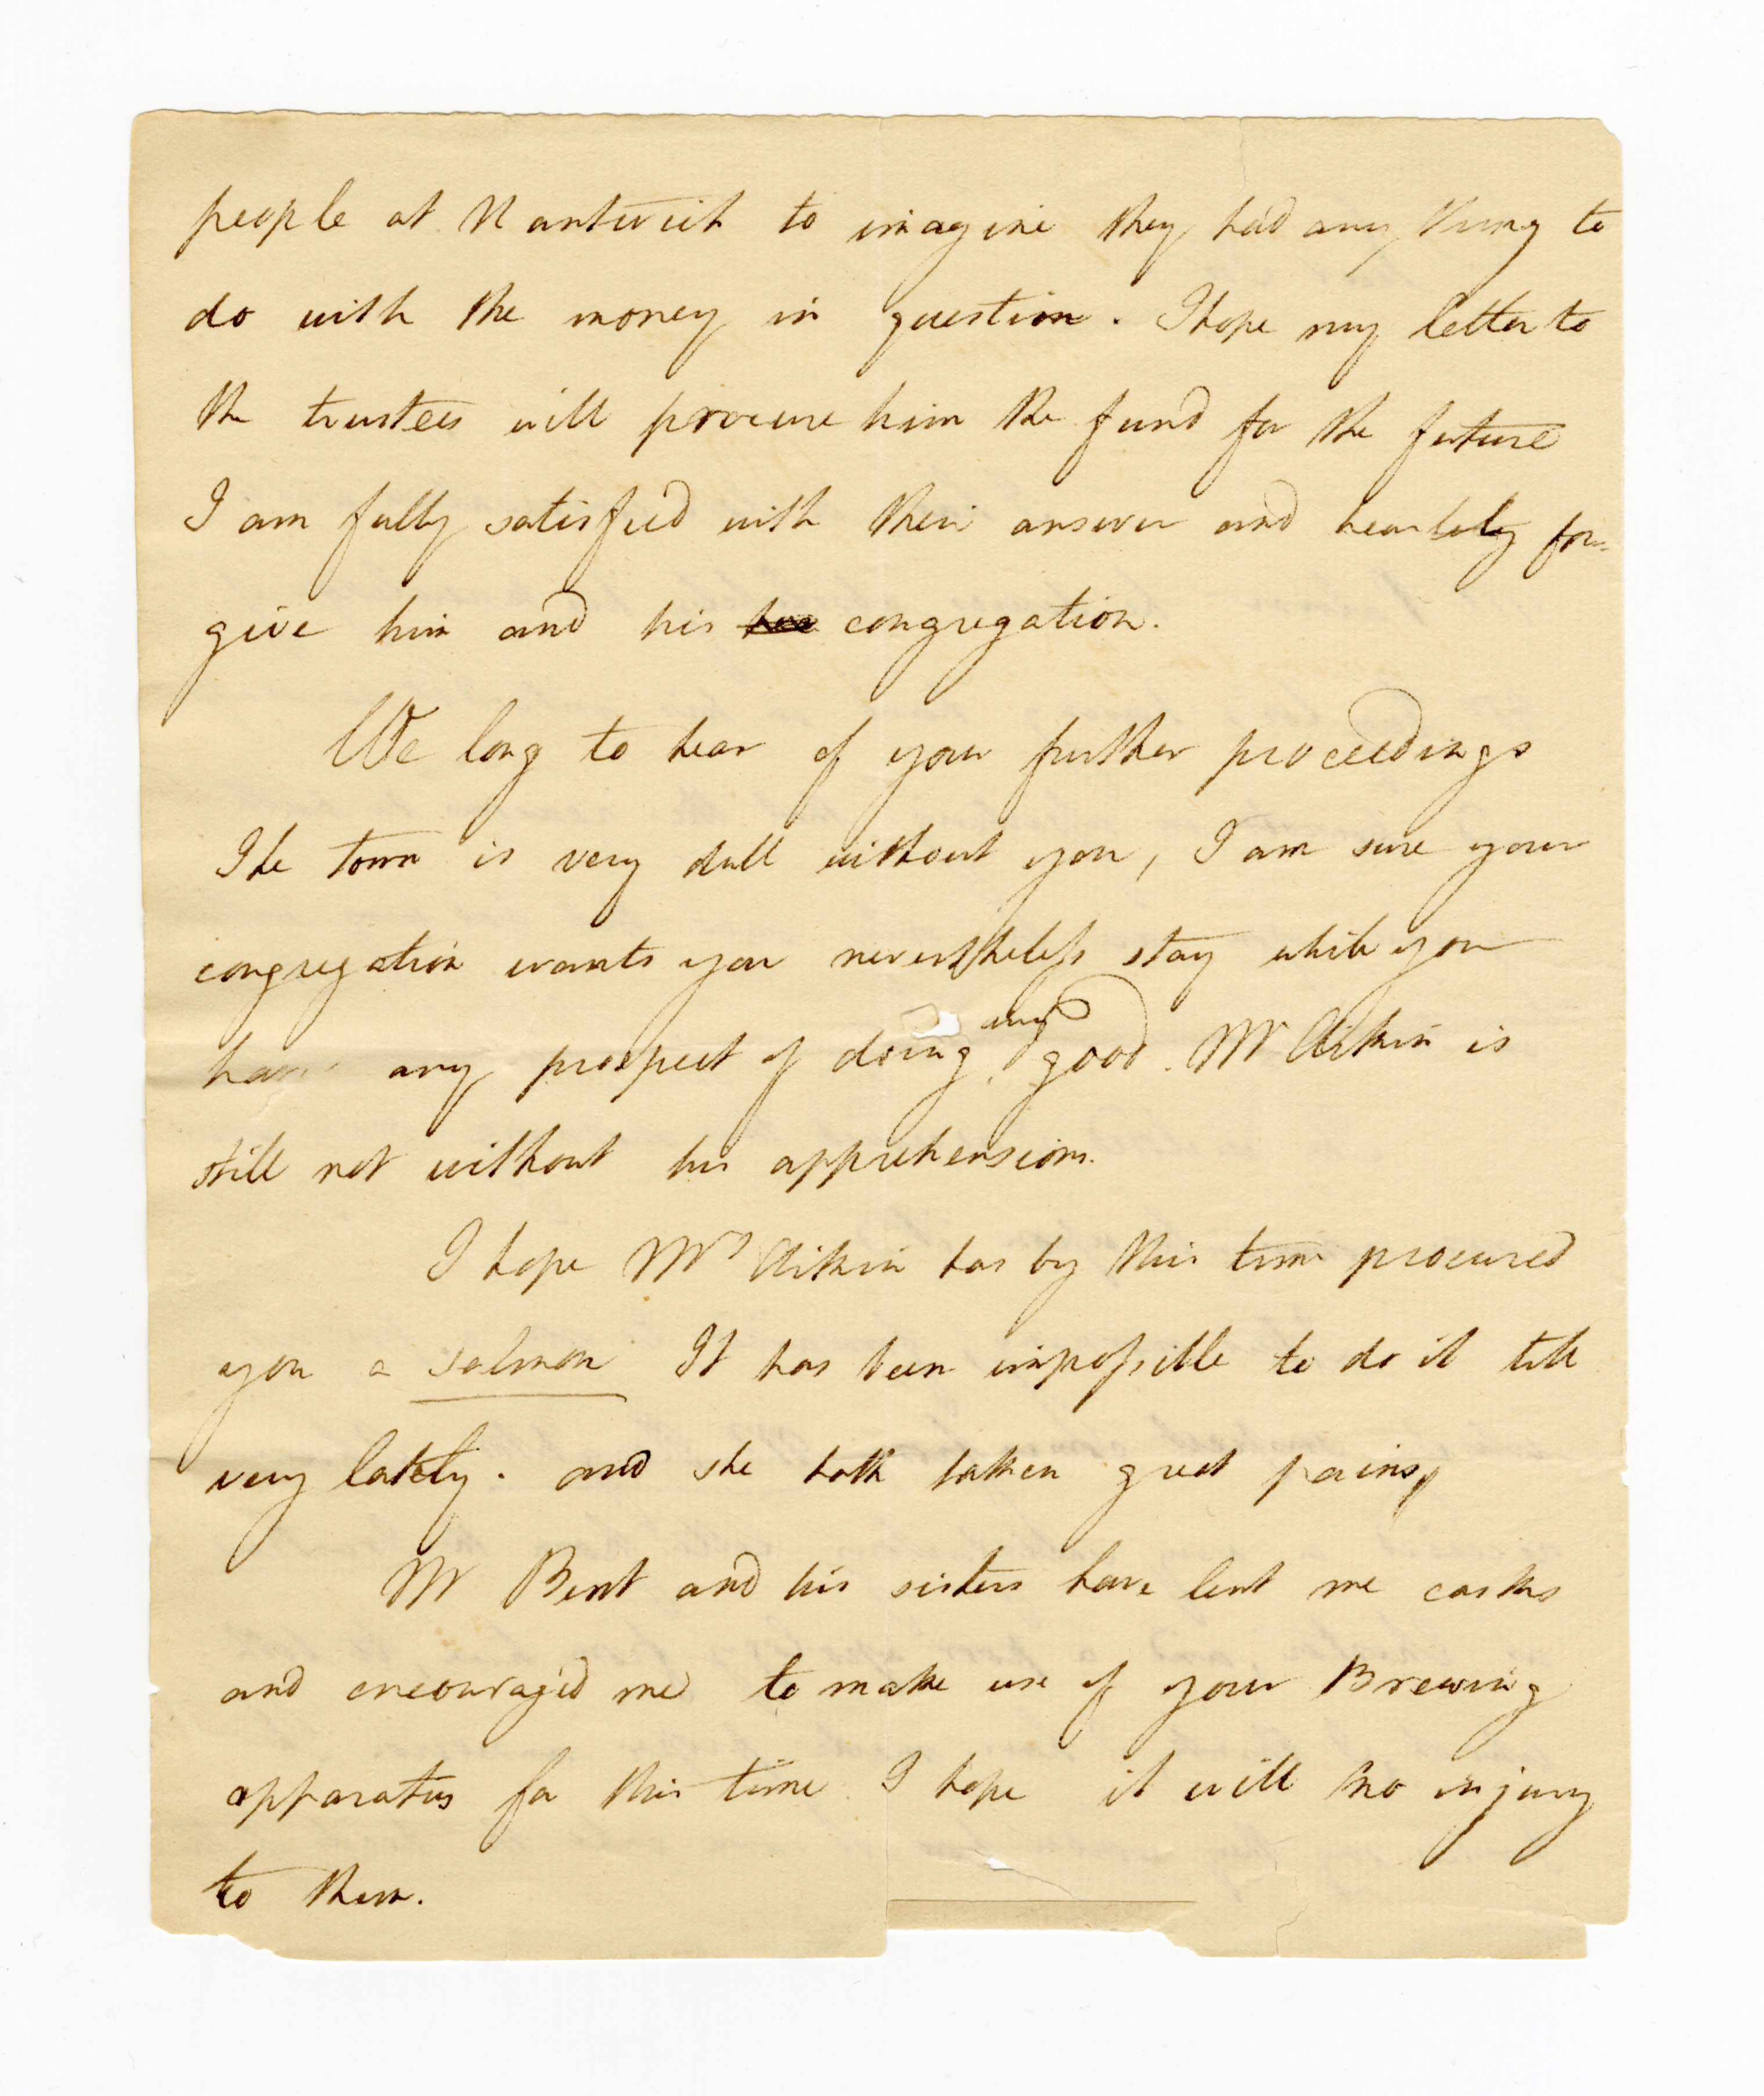 people at Nantwich to imagine they had any thing to
do with the money in question. I hope my letter to
the trustees will procure him the fund for the future
I am fully satisfied with their answer and heartily for-
give him and his congregation.
We long to hear of your further proceedings
The town is very dull without you, I am sure your
congregation wants you nevertheless stay while you
have any prospect of doing any good. Mr Aikin is
still not without his apprehensions.
I hope Mrs Aikin has by this time procured
you a salmon It has been impossible to do it till
very lately. and she hath taken great pains
Mr Bent and his sisters have lent me casks
and encouraged me to make use of your Brewing
apparatus for this time I hope it will no injury
to them.